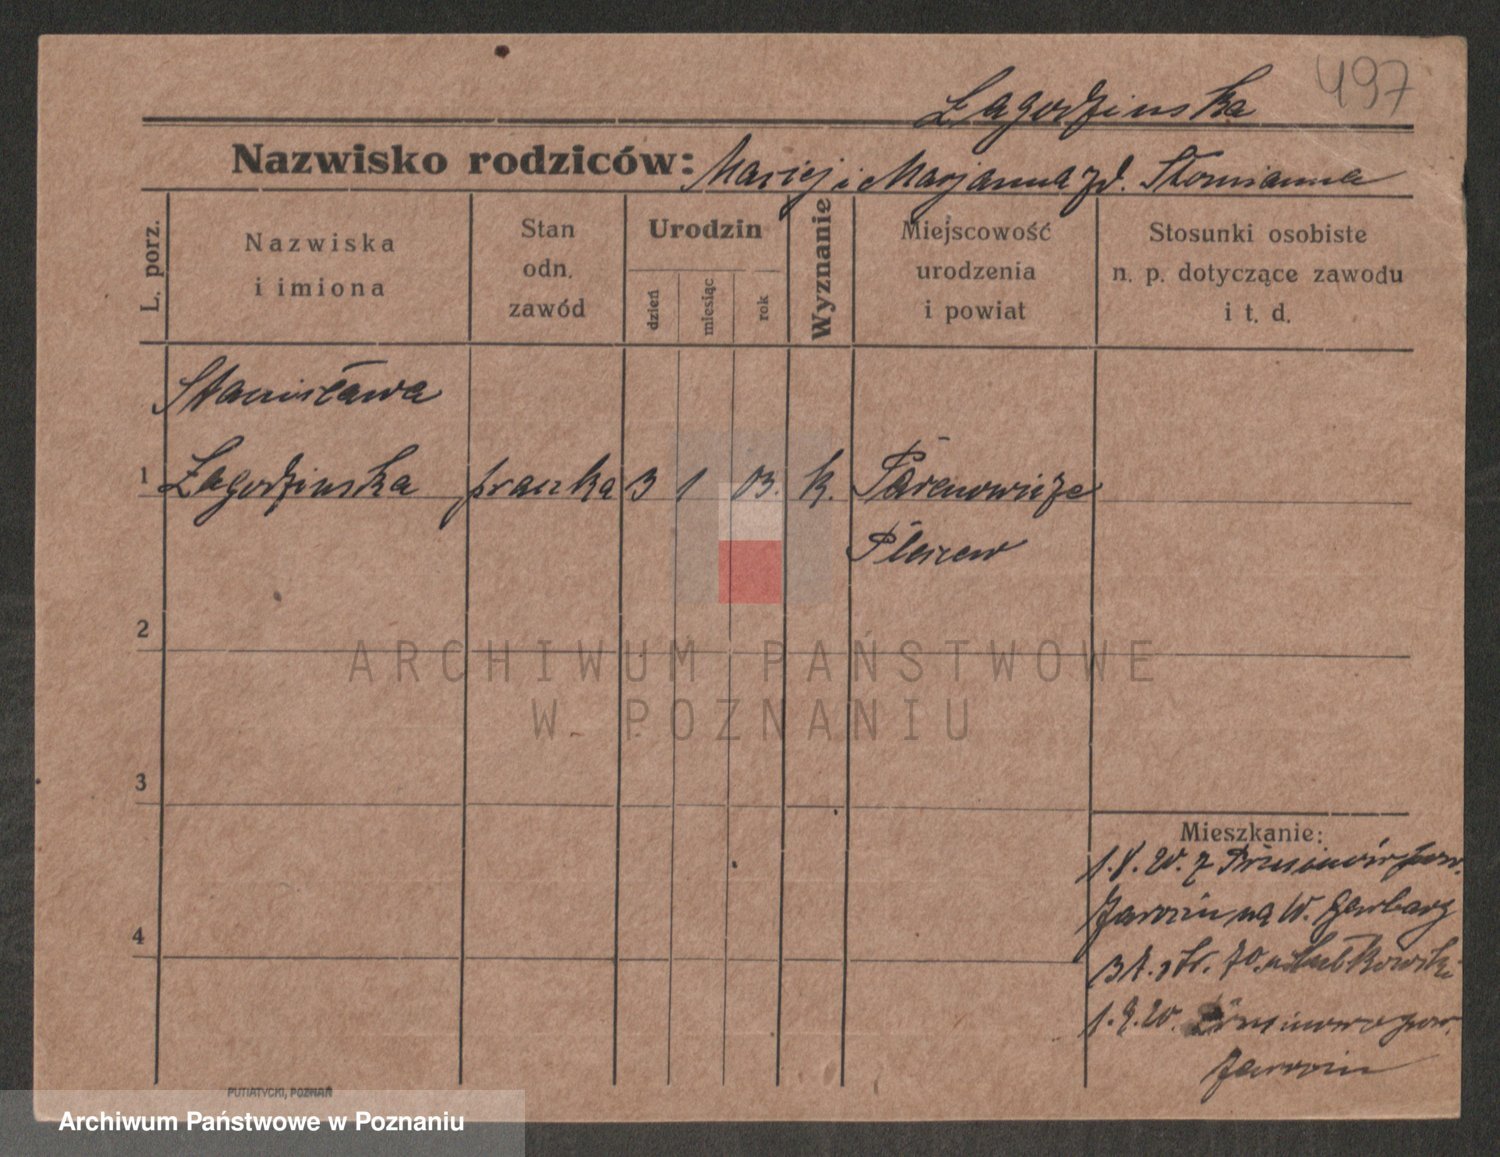 497
Łagodzinska
Nazwisko rodziców: Maciej i Marjanna zd. Słomianna
L. porz.
Nazwiska
i imiona
Stan
odn.
zawód
Urodzin
dzień
miesiąc
rok
Wyznanie
Miejscowość
urodzenia
i powiat
Stosunki osobiste
n. p. dotyczące zawodu
i t. d.
Stanisława
1 Łagodzinska praczka 3 1 03. k.
Pleszew
2
ARCHIWUM PAŃSTWOWE
W POZNANIU
3
Mieszkanie:
1.8.20. z pow.
Jarocin na W. Garbary
4
1.9.20. pow.
Jarocin
PUTIATYCKI, POZNAŃ
Archiwum Państwowe w Poznaniu